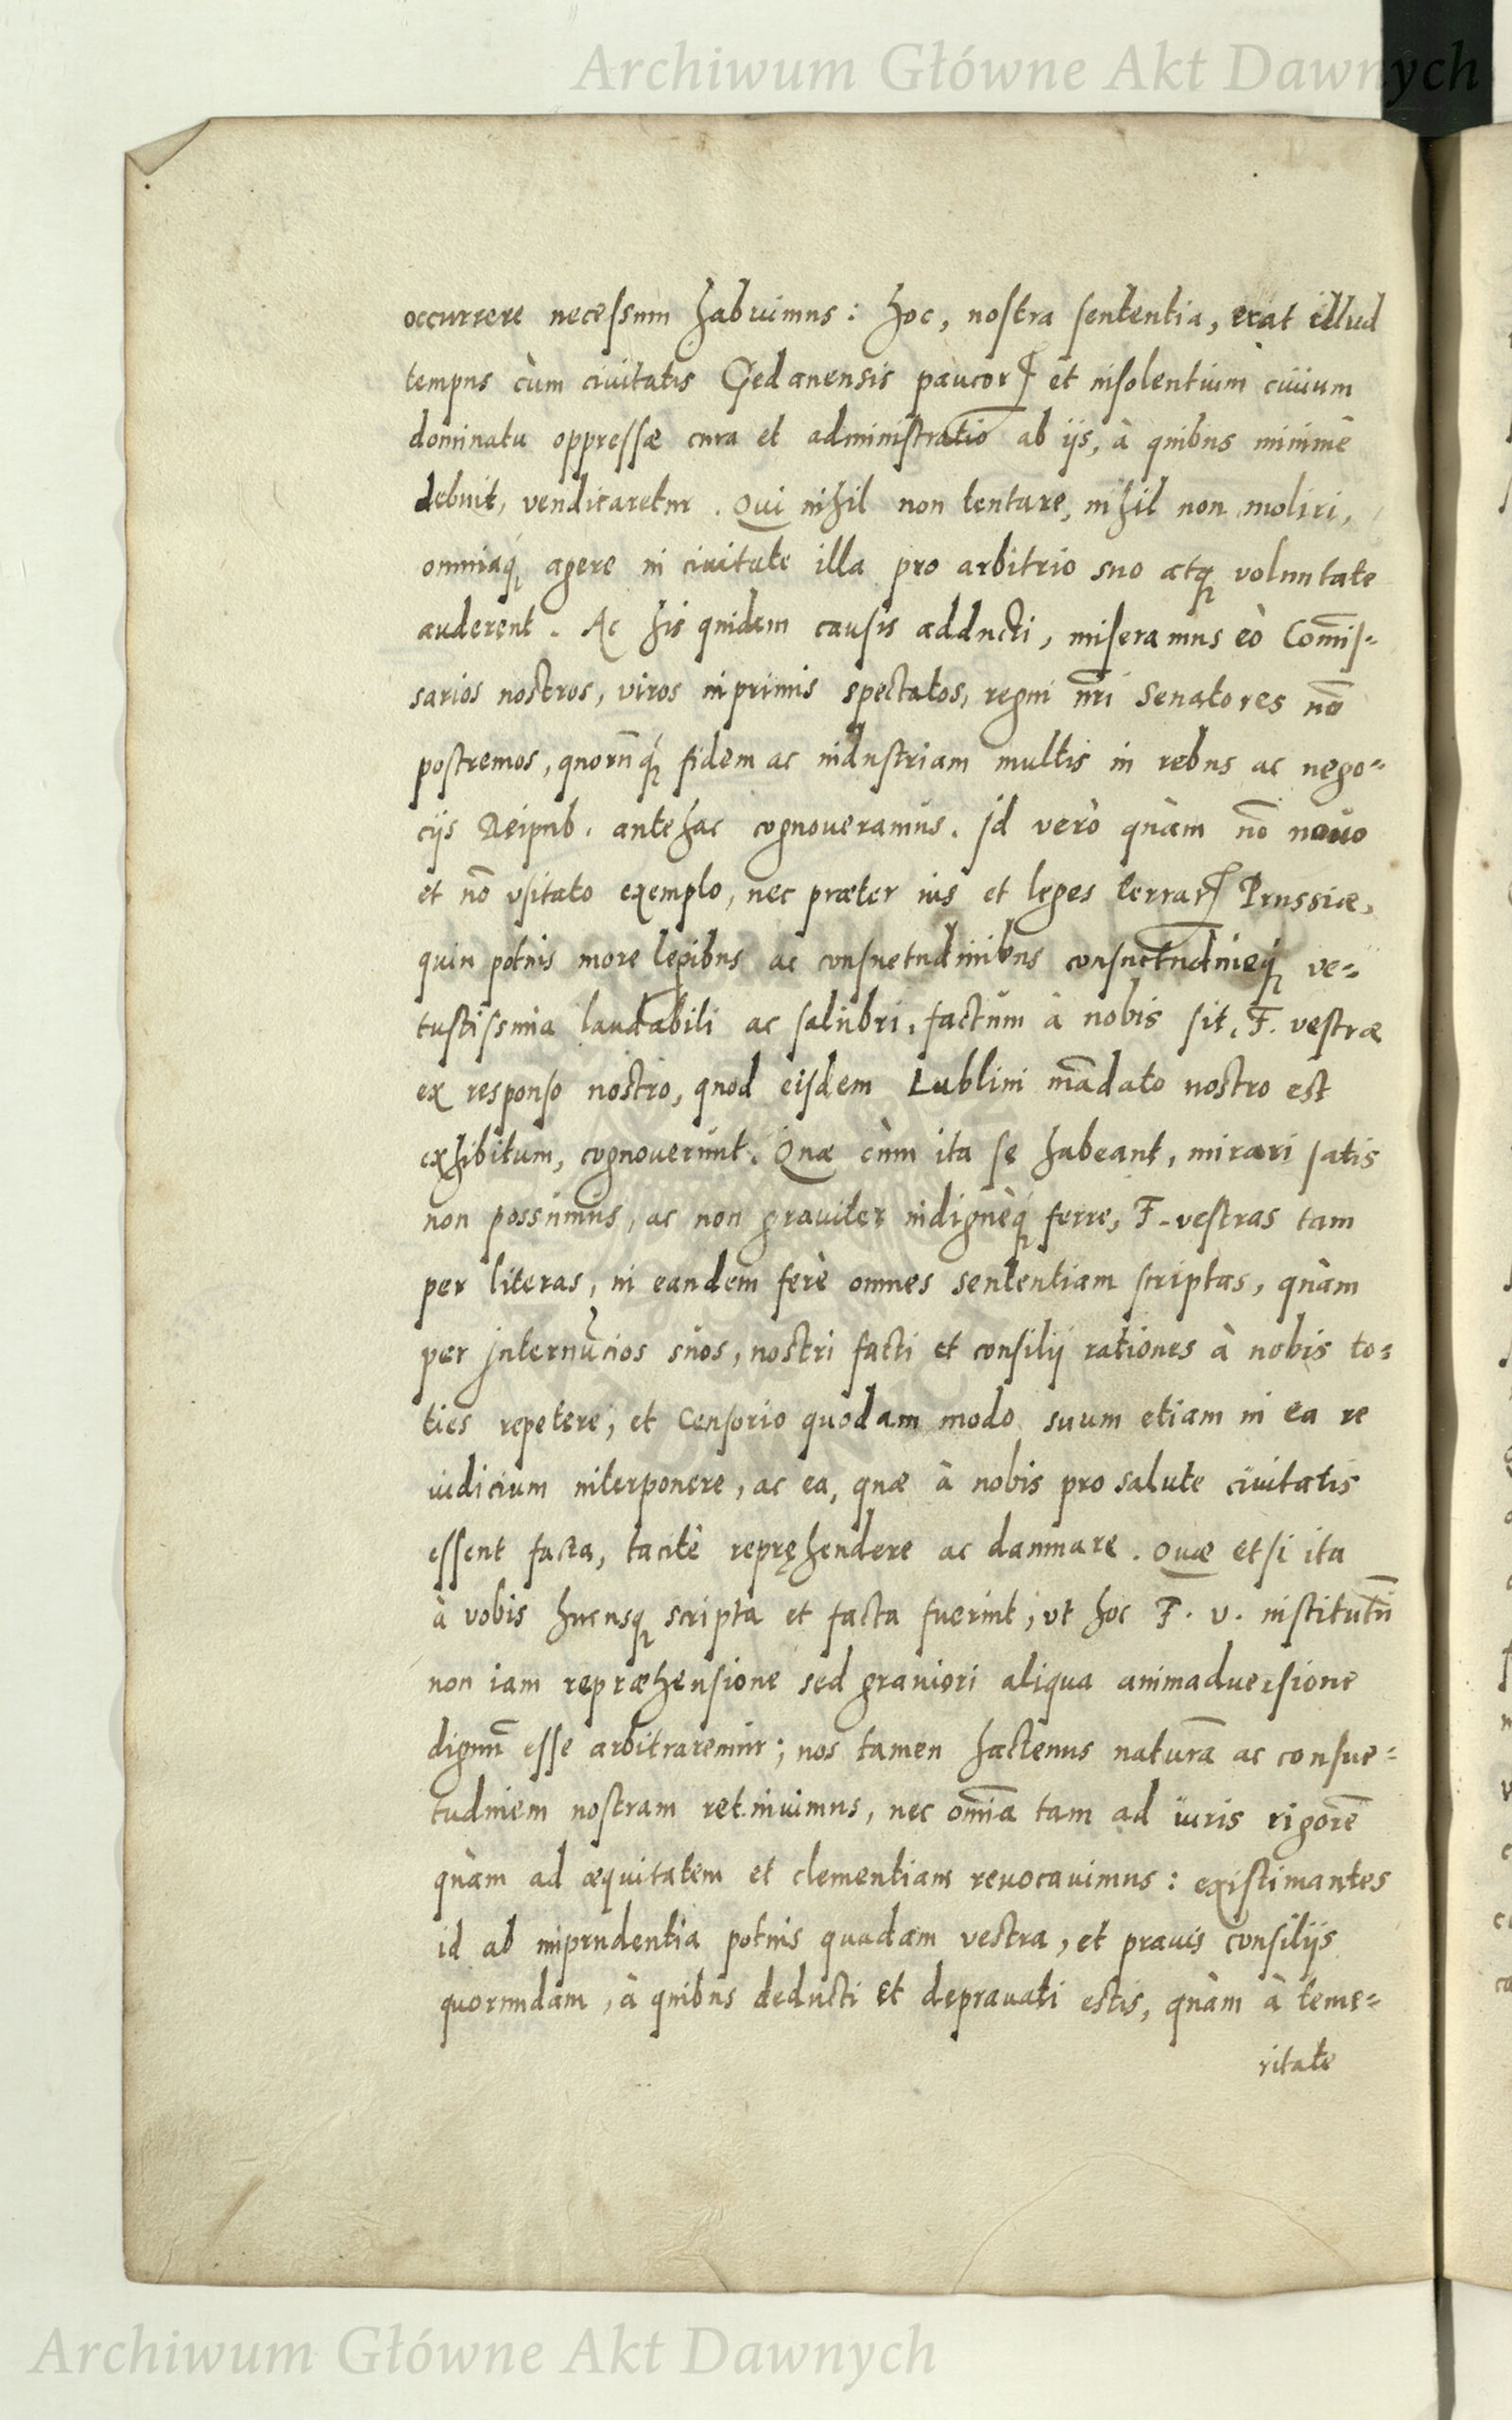 Archiwum Główne Akt Dawnych
occurrere necessum habuimus: hoc, nostra sententia, erat illud
tempus cùm ciuitatis Gedanensis paucorꝝ et insolentium ciuium
dominatu oppressæ cura et administratio ab ijs, à quibus minimè
debuit, vendicaretur. Qui nihil non tentare, nihil non moliri,
omniaq́ꝫ agere in ciuitate illa pro arbitrio suo atqꝫ voluntate
auderent. Ac his quidem causis adducti, miseramus eò Com̄is=
sarios nostros, viros inprimis spectatos, regni nr̄i Senatores nō
postremos, quorūq́ꝫ fidem ac industriam multis in rebus ac nego=
cijs Reipub. antehac cognoueramus. Id verò quàm nō nouo
et nō vsitato exemplo, nec præter ius et leges terrarꝝ Prussiæ,
quin potius more legibus ac consuetudinibus consuetudineq́ꝫ ve=
tustissima laudabili ac salubri, factum à nobis sit, F. vestræ
ex responso nostro, quod eisdem Lublini mādato nostro est
exhibitum, cognouerunt. Quæ cùm ita se habeant, mirari satis
non possumus, ac non grauiter indignèq́ꝫ ferre, F. vestras tam
per literas, in eandem ferè omnes sententiam scriptas, quàm
per internūcios suos, nostri facti et consilij rationes à nobis to=
ties repetere, et Censorio quodam modo suum etiam in ea re
iudicium interponere, ac ea, quæ à nobis pro salute ciuitatis
essent facta, tacitè repręhendere ac damnare. Quæ etsi ita
à vobis hucusqꝫ scripta et facta fuerint, vt hoc F. v. institutū
non iam repræhensione sed grauiori aliqua animaduersione
dignū esse arbitraremur; nos tamen hactenus naturā ac consue=
tudinem nostram retinuimus, nec om̄ia tam ad iuris rigorē
quàm ad æquitatem et clementiam reuocauimus: existimantes
id ab imprudentia potius quadam vestra, et prauis consilijs
quorundam, à quibus deducti et deprauati estis, quàm à teme=
ritate
Archiwum Główne Akt Dawnych